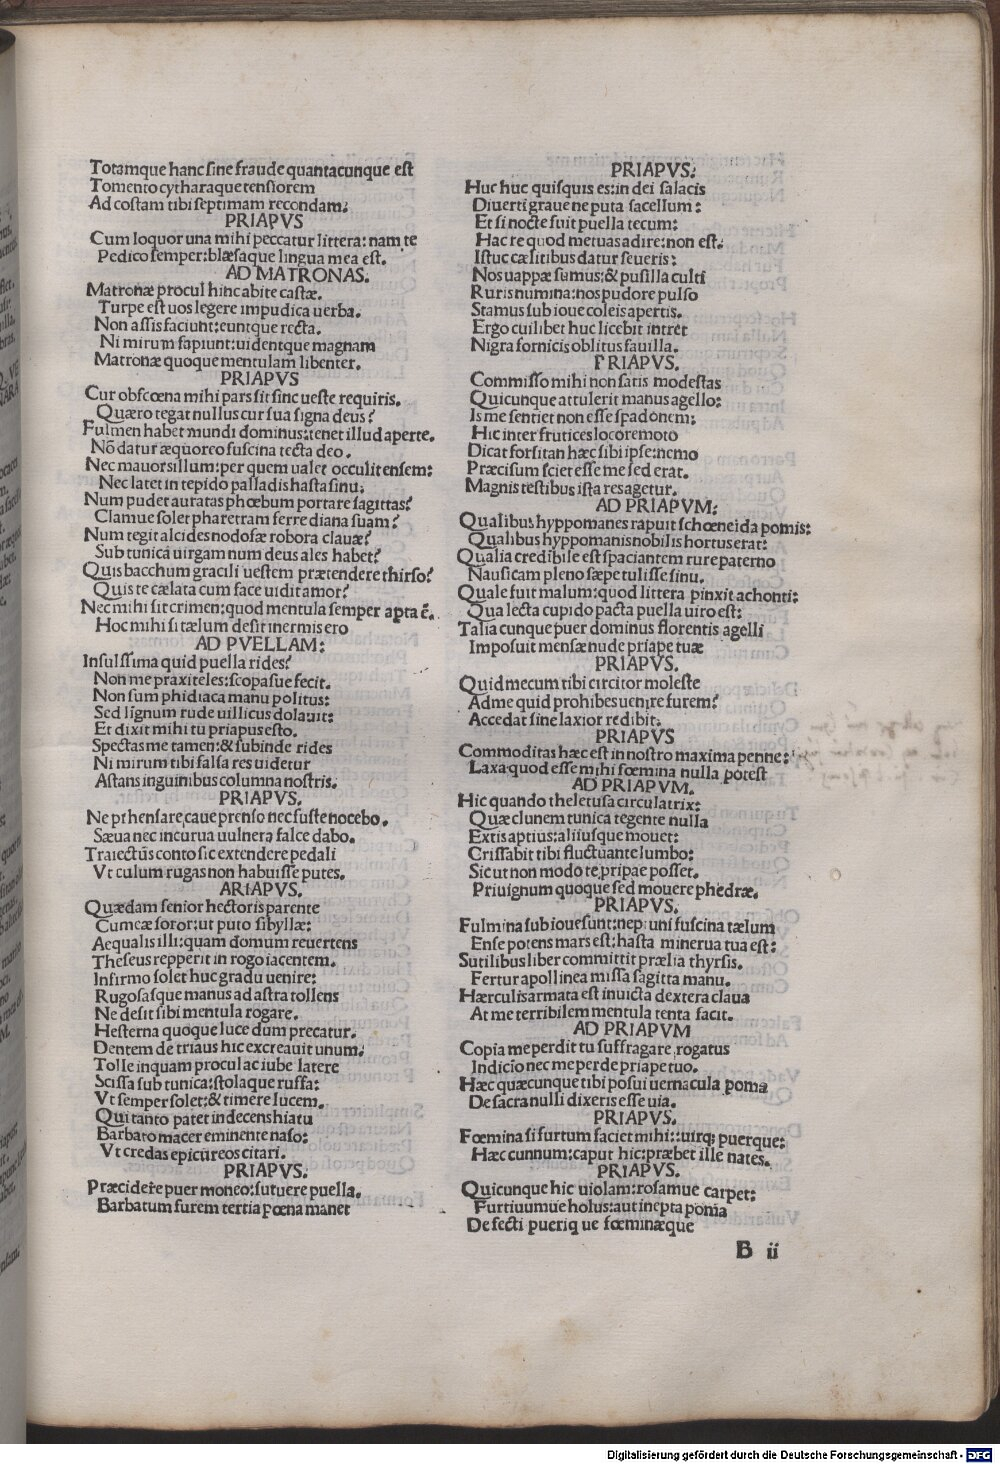 Totamque hanc sine fraude quantacunque est
Tomento cytharaque tensiorem
Ad costam tibi septimam recondam.
PRIAPVS
Cum loquor una mihi peccatur littera: nam te
Pedico semper: blæsaque lingua mea est.
AD MATRONAS.
Matronæ procul hinc abite castæ.
Turpe est uos legere impudica uerba.
Non assis faciunt: euntque recta.
Ni mirum sapiunt: uidentque magnam
Matronæ quoque mentulam libenter.
PRIAPVS
Cur obscœna mihi pars sit sine ueste requiris.
Quæro tegat nullus cur sua signa deus?
Fulmen habet mundi dominus: tenet illud aperte.
Nõ datur æquoreo fuscina tecta deo.
Nec mauors illum: per quem ualet occulit ensem:
Nec latet in tepido palladis hasta sinu.
Num pudet auratas phœbum portare sagittas?
Clamue solet pharetram ferre diana suam?
Num tegit alcides nodosæ robora clauæ?
Sub tunica uirgam num deus ales habet?
Quis bacchum gracili uestem prætendere thirso?
Quis te cælata cum face uidit amor?
Nec mihi sit crimen: quod mentula semper apta ẽ.
Hoc mihi si tælum desit inermis ero
AD PVELLAM:
Insulssima quid puella rides?
Non me praxiteles: scopasue fecit.
Non sum phidiaca manu politus:
Sed lignum rude uillicus dolauit:
Et dixit mihi tu priapus esto.
Spectas me tamen: & subinde rides
Ni mirum tibi salsa res uidetur
Astans inguinibus columna nostris.
PRIAPVS.
Ne prhensare, caue prenso nec fuste nocebo.
Sæua nec incurua uulnera falce dabo.
Traiectũs conto sic extendere pedali
Vt culum rugas non habuisse putes.
ARIAPVS.
Quædam senior hectoris parente
Cumeæ soror: ut puto sibyllæ:
Aequalis illi: quam domum reuertens
Theseus repperit in rogo iacentem.
Infirmo solet huc gradu uenire:
Rugosasque manus ad astra tollens
Ne desit sibi mentula rogare.
Hesterna quoque luce dum precatur.
Dentem de triaus hic excreauit unum.
Tolle inquam procul ac iube latere
Scissa sub tunica: stolaque ruffa:
Vt semper solet: & timere lucem.
Qui tanto patet indecens hiatu
Barbato macer eminente naso:
Vt credas epicureos citari.
PRIAPVS.
Præcidere puer moneo: futuere puella.
Barbatum furem tertia pœna manet
PRIAPVS.
Huc huc quisquis es: in dei salacis
Diuerti graue ne puta sacellum:
Et si nocte fuit puella tecum:
Hac re quod metuas adire: non est.
Istuc cælitibus datur seueris:
Nos uappæ sumus: & pusilla culti
Ruris numina: nos pudore pulso
Stamus sub ioue coleis apertis.
Ergo cuilibet huc licebit intret
Nigra fornicis oblitus fauilla.
PRIAPVS.
Commisso mihi non satis modestas
Quicunque attulerit manus agello:
Is me sentiet non esse spadonem:
Hic inter frutices loco remoto
Dicat forsitan hæc sibi ipse: nemo
Præcisum sciet esse me sed erat.
Magnis testibus ista res agetur.
AD PRIAPVM:
Qualibus hyppomanes rapuit schœneida pomis:
Qualibus hyppomanis nobilis hortus erat:
Qualia credibile est spaciantem rure paterno
Nausicam pleno sæpe tulisse sinu.
Quale fuit malum: quod littera pinxit achonti:
Qua lecta cupido pacta puella uiro est:
Talia cunque puer dominus florentis agelli
Imposuit mensæ nude priape tuæ
PRIAPVS.
Quid mecum tibi circitor moleste
Ad me quid prohibes uenire furem?
Accedat sine laxior redibit.
PRIAPVS
Commoditas hæc est in nostro maxima penne:
Laxa quod esse mihi fœmina nulla potest
AD PRIAPVM.
Hic quando theletusa circulatrix:
Quæ clunem tunica tegente nulla
Extis aptius: aliiusque mouet:
Crissabit tibi fluctuante lumbo:
Sic ut non modo te, pripae posset.
Priuignum quoque sed mouere phedræ.
PRIAPVS.
Fulmina sub ioue sunt: neptuni fuscina tælum
Ense potens mars est: hasta minerua tua est:
Sutilibus liber committit prælia thyrsis.
Fertur apollinea missa sagitta manu.
Hærculis armata est inuicta dextera claua
At me terribilem mentula tenta facit.
AD PRIAPVM
Copia me perdit tu suffragare rogatus
Indicio nec me perde priape tuo.
Hæc quæcunque tibi posui uernacula poma
De sacra nulli dixeris esse uia.
PRIAPVS.
Fœmina si furtum faciet mihi: uirq; puerque:
Hæc cunnum: caput hic: præbet ille nates.
PRIAPVS.
Quicunque hic uiolam: rosamue carpet:
Furtiuumue holus: aut inepta poma
Defecti pueriq ue fœminæque
B ii
Digitalisierung gefördert durch die Deutsche Forschungsgemeinschaft - DFG